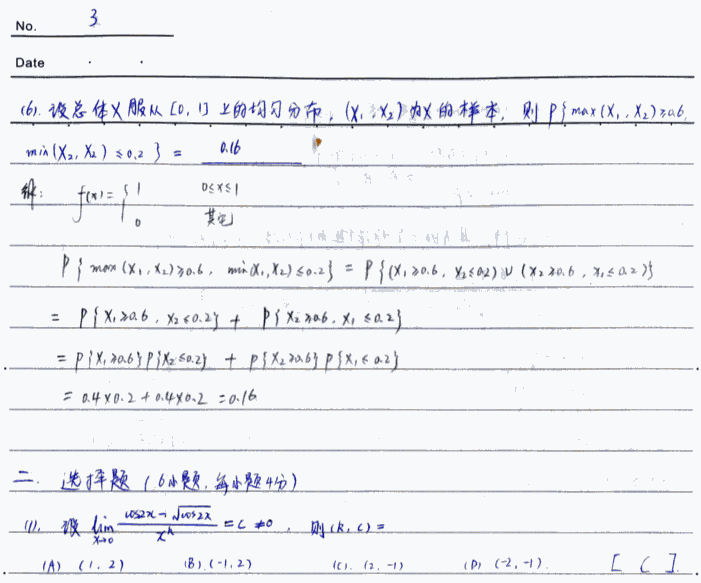 No. 3
Date . .
(6). 设总体X服从[0,1]上的均匀分布,(X₁,X₂)为X的样本,则P{max(X₁,X₂)≥0.6,
min(X₂,X₂)≤0.2} = 0.16
解: f(x)={1 0≤x≤1
0 其它
P{max(X₁,X₂)≥0.6, min(X₁,X₂)≤0.2} = P{(X₁≥0.6, X₂≤0.2)∪(X₂≥0.6, X₁≤0.2)}
= P{X₁≥0.6, X₂≤0.2} + P{X₂≥0.6, X₁≤0.2}
= P{X₁≥0.6}P{X₂≤0.2} + P{X₂≥0.6}P{X₁≤0.2}
= 0.4×0.2+0.4×0.2 =0.16
二. 选择题(6小题,每小题4分)
(1). 设 lim x→0 (cos2x-√cos2x)/x^k = C ≠0, 则(k,c)=
(A) (1,2) (B).(-1,2) (C). (2,-1) (D) (-2,-1). [ C ].